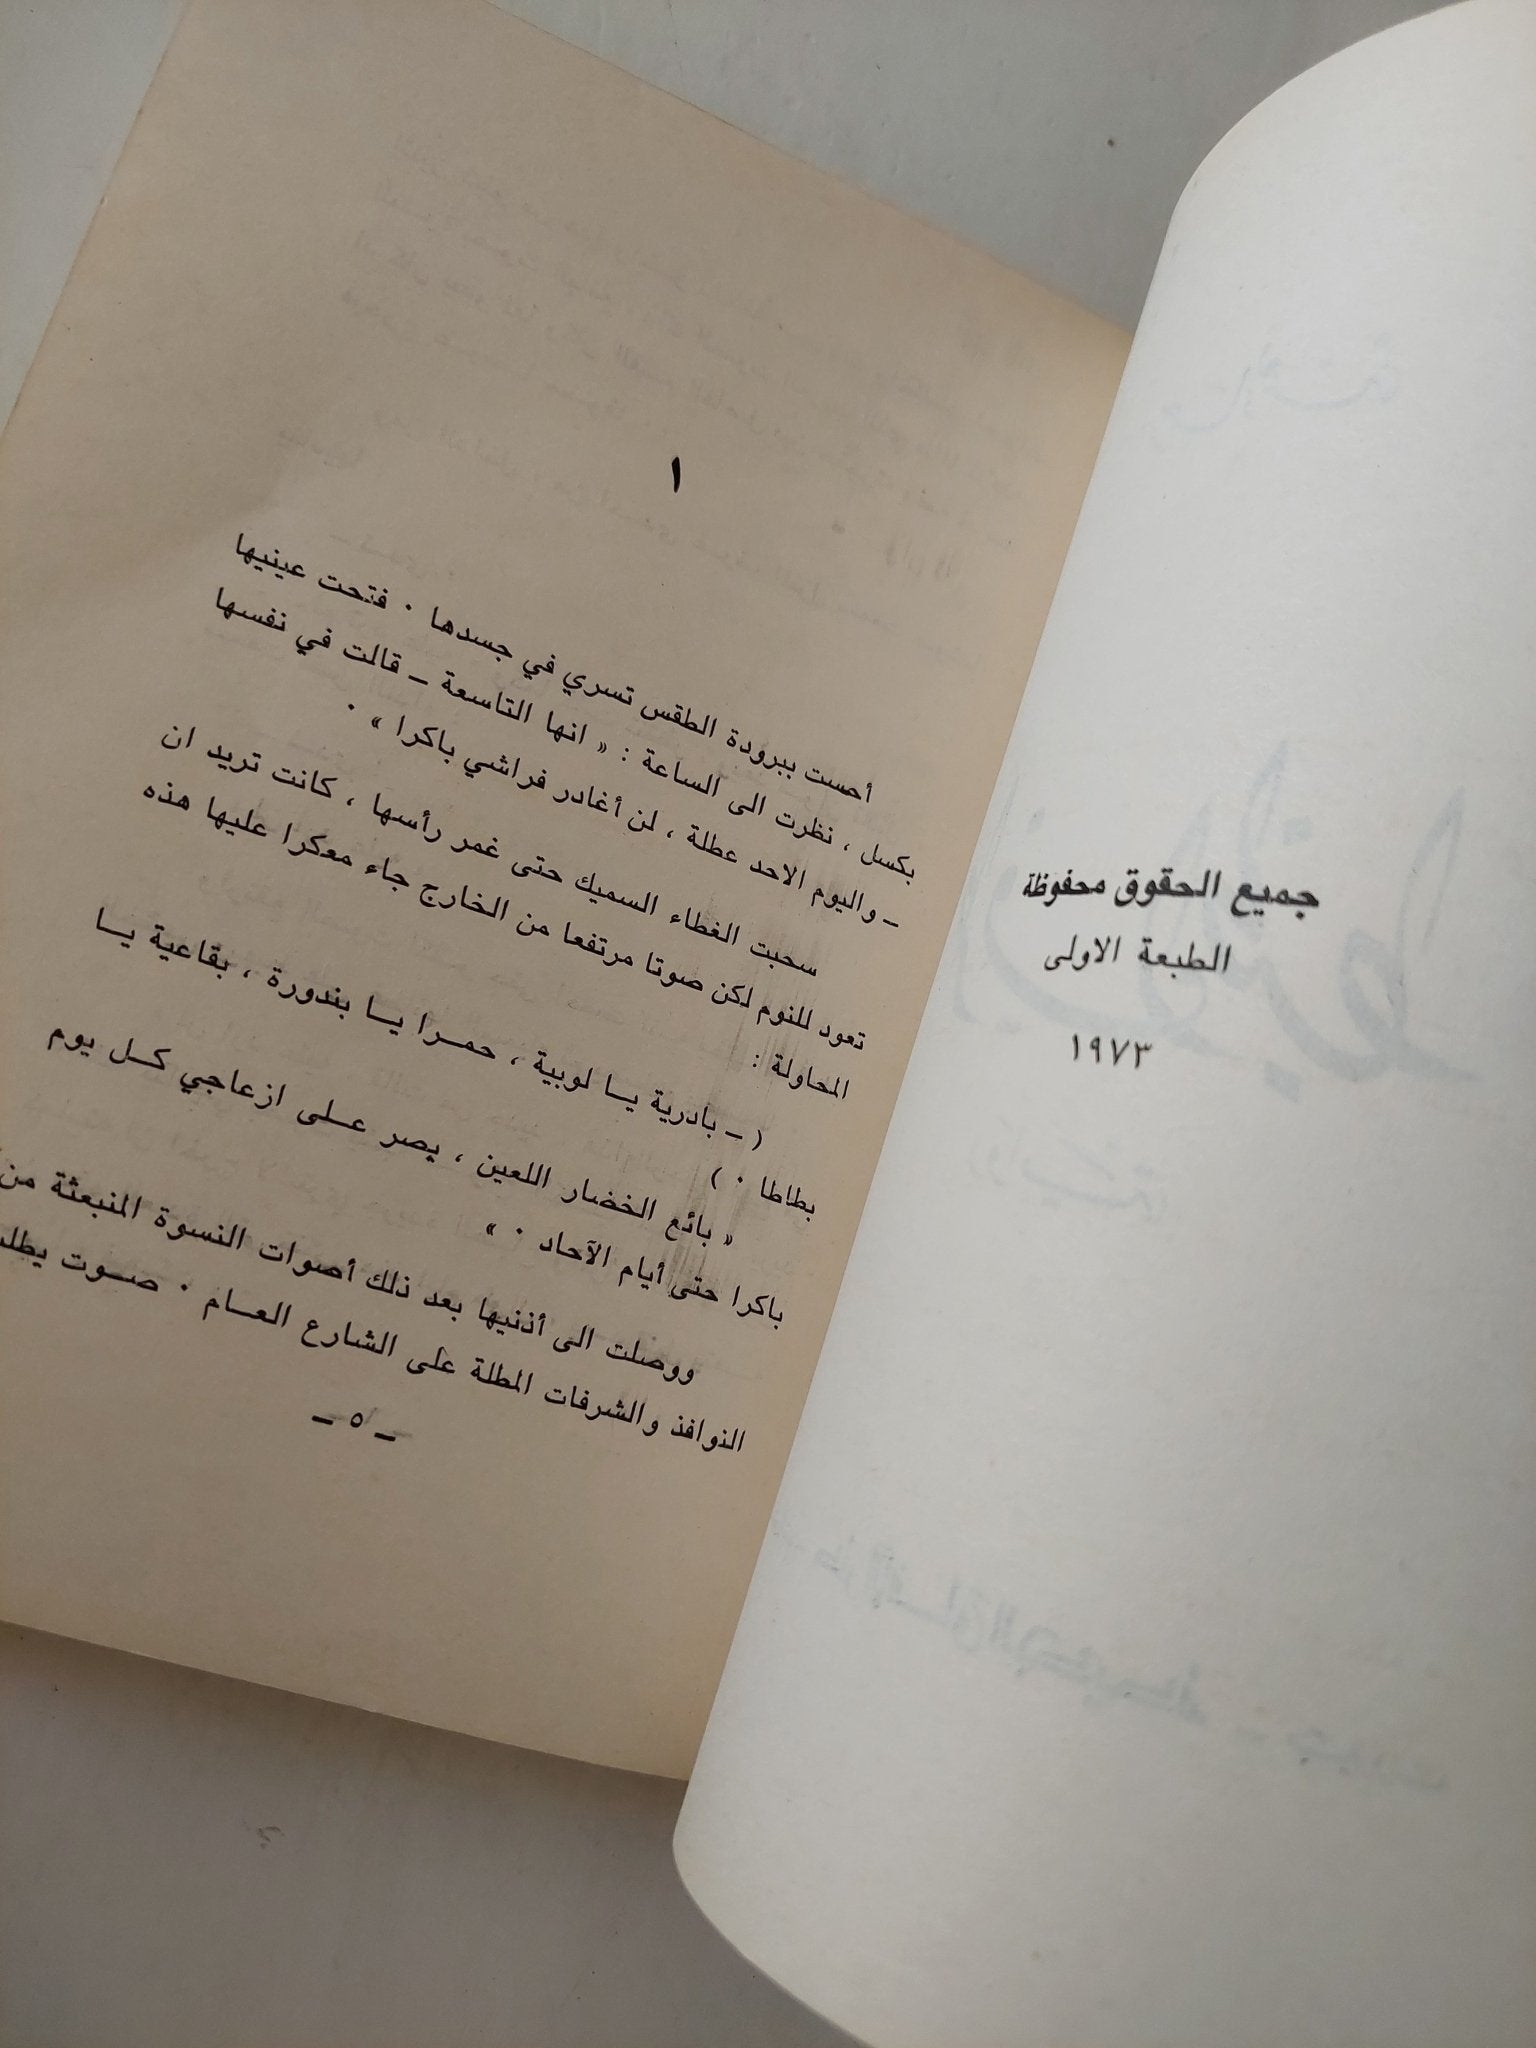 جميع الحقوق محفوظة
الطبعة الاولى
١٩٧٣
١
أحست ببرودة الطقس تسري في جسدها ٠ فتحت عينيها
بكسل ، نظرت الى الساعة : « انها التاسعة ــ قالت في نفسها
ــ واليوم الاحد عطلة ، لن أغادر فراشي باكرا » ٠
سحبت الغطاء السميك حتى غمر رأسها ، كانت تريد ان
تعود للنوم لكن صوتا مرتفعا من الخارج جاء معكرا عليها هذه
المحاولة :
( ــ بادرية يا لوبية ، حمرا يا بندورة ، بقاعية يا
بطاطا ٠ )
« بائع الخضار اللعين ، يصر على ازعاجي كل يوم
باكرا حتى أيام الآحاد ٠ »
ووصلت الى أذنيها بعد ذلك أصوات النسوة المنبعثة من
النوافذ والشرفات المطلة على الشارع العام ٠ صوت
ــ ٥ ــ